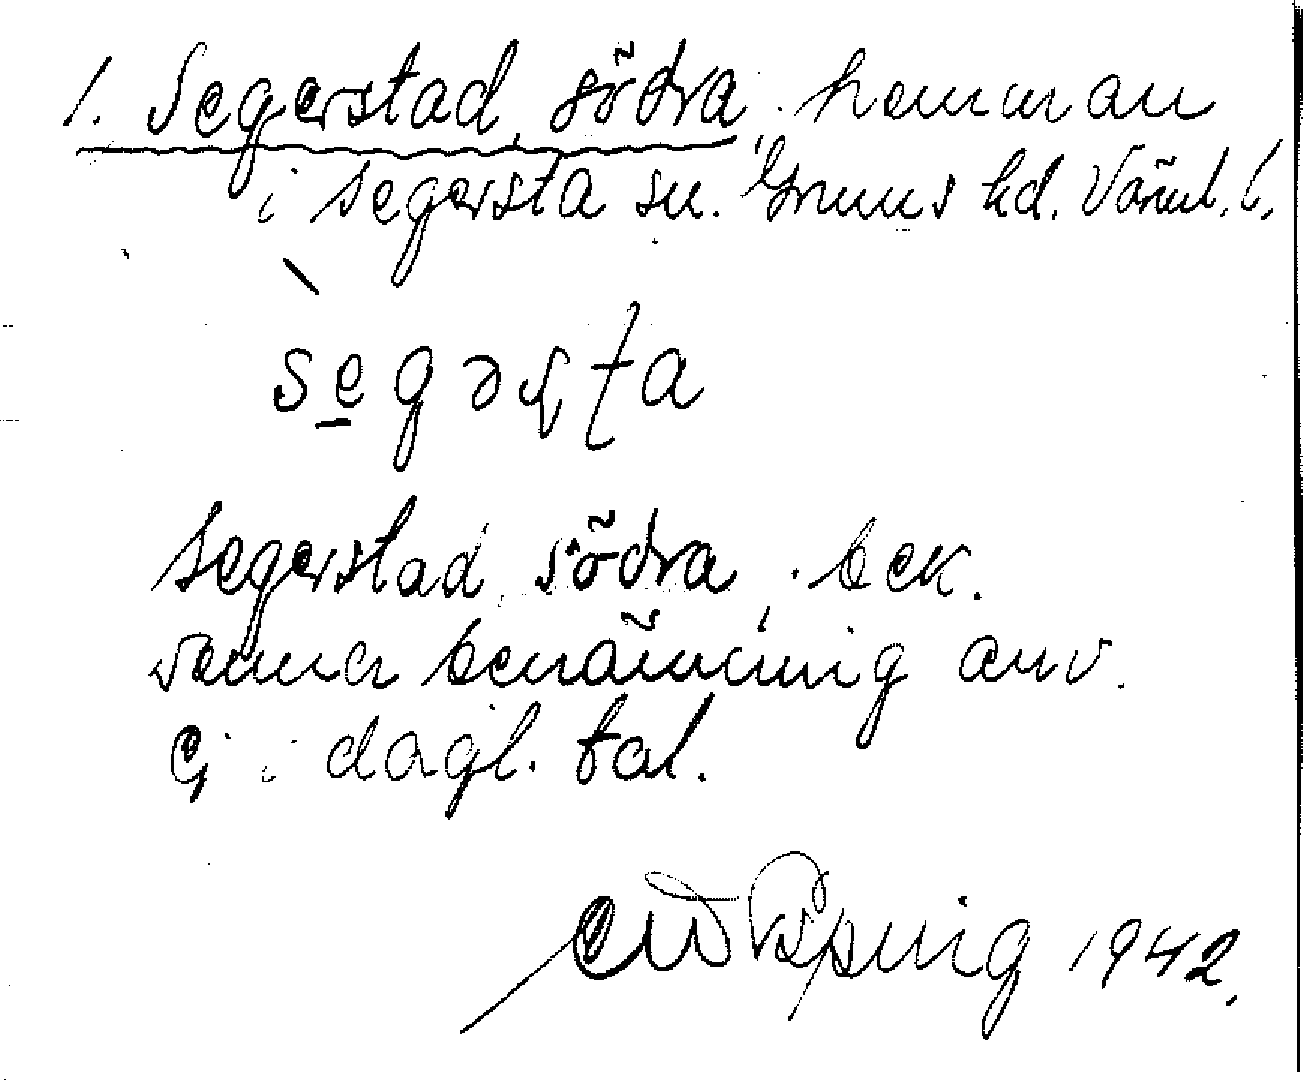 1. Segerstad, södra, hemman
i Segersta sn. Grums hd. Värml. l.
sègərʂta
Segerstad, södra, bek.
denna benämning anv.
ej i dagl. tal.
1942.